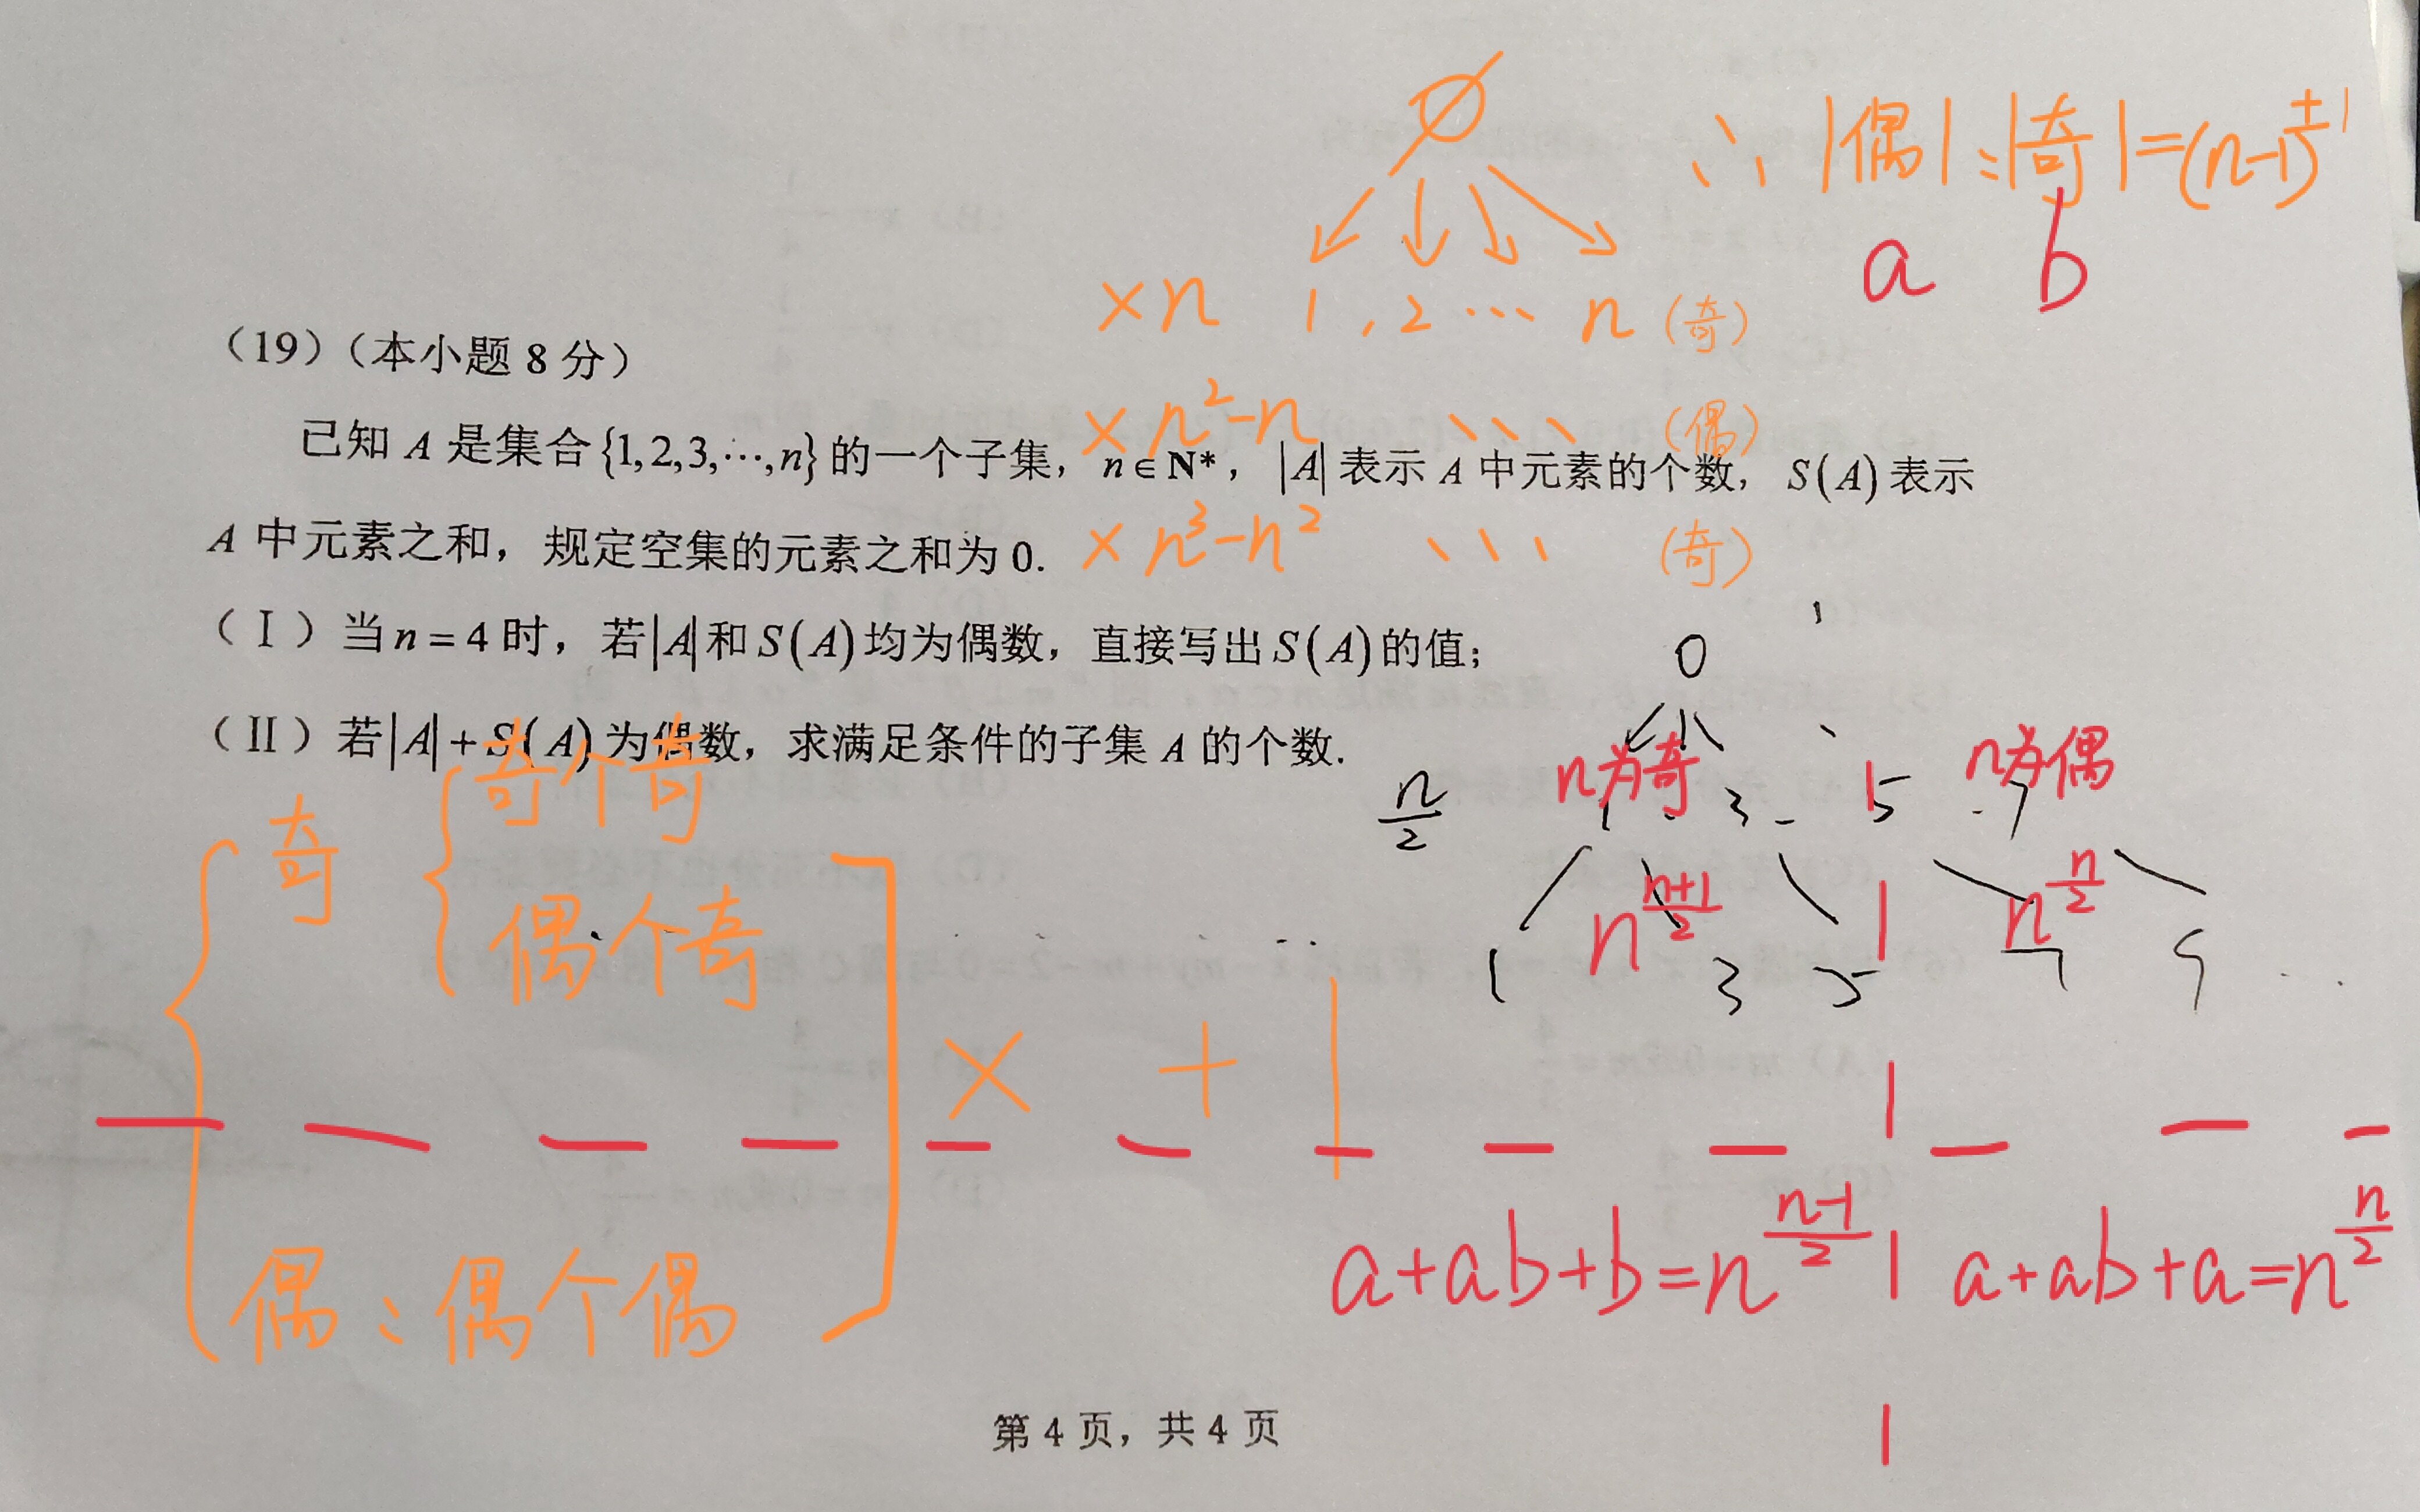 ∴ |偶|:|奇|=(n-1)^±1
a b
×n 1,2…n (奇)
(19)(本小题 8 分)
×n²-n (偶)
已知 A 是集合{1,2,3,⋯,n}的一个子集, n∈N*, |A|表示 A 中元素的个数, S(A)表示
A 中元素之和, 规定空集的元素之和为 0.
×n³-n² (奇)
(Ⅰ)当 n=4 时, 若|A|和 S(A)均为偶数, 直接写出 S(A)的值;
0
(Ⅱ)若|A|+S(A)为偶数, 求满足条件的子集 A 的个数.
奇个奇
n为奇 n为偶
奇
n/2 1 3 5 7
偶个奇
n^(n+1)/2 n^n/2
1 3 5 7 9
× +
a+ab+b=n^(n-1)/2 a+ab+a=n^n/2
偶:偶个偶
第 4 页, 共 4 页